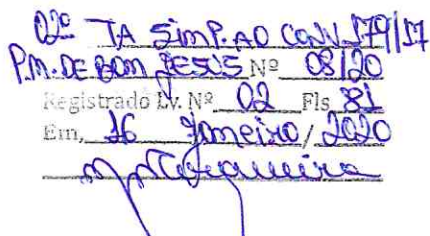 02º TA SIMP. AO CONV 179/17
P.M. DE BOM JESUS Nº 08/20
Registrado Lv. Nº 02 Fls 81
Em, 16 Janeiro / 2020